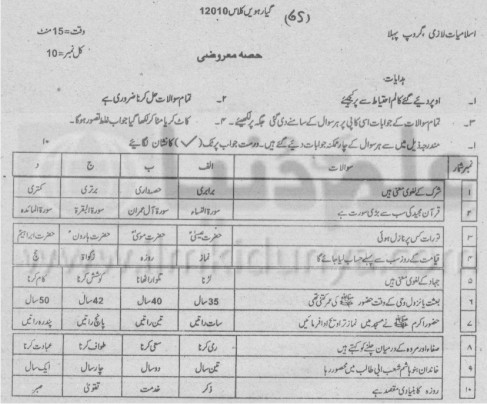 گیارہویں کلاس 12010 (65)
اسلامیات لازمی، گروپ پہلا
وقت=15 منٹ
حصہ معروضی
کل نمبر=10
ہدایات
۱۔ اوپر دئیے گئے کالم احتیاط سے پر کیجئے ۲۔ تمام سوالات حل کرنا ضروری ہے
۳۔ تمام سوالات کے جوابات اسی کاپی پر ہر سوال کے سامنے دی گئی جگہ پر لکھیئے۔ ۴۔ کاٹ کر یا مٹا کر لکھا گیا جواب غلط تصور ہوگا۔
۱۔ مندرجہ ذیل میں سے ہر سوال کے چار ممکنہ جوابات دیئے گئے ہیں۔ درست جواب پر ٹک (✓) کا نشان لگائیے ۱۰
نمبر شمار سوالات الف ب ج د
۱ شرک کے لغوی معنی ہیں برابری حصہ داری برتری کمتری
۲ قرآن مجید کی سب سے بڑی سورت ہے سورۃ النساء سورۃ آل عمران سورۃ البقرۃ سورۃ المائدہ
۳ تورات کس پر نازل ہوئی حضرت عیسیٰؑ حضرت موسیٰؑ حضرت ہارونؑ حضرت ابراہیمؑ
۴ قیامت کے روز سب سے پہلے حساب لیا جائے گا نماز روزہ زکوٰۃ حج
۵ جہاد کے لغوی معنی ہیں لڑنا تلوار اٹھانا کوشش کرنا کام کرنا
۶ بعثت یا نزول وحی کے وقت حضور ﷺ کی عمر کتنی تھی 35 سال 40 سال 42 سال 50 سال
۷ حضور اکرم ﷺ نے مسجد میں نماز تراویح ادا فرمائیں سات راتیں تین راتیں پانچ راتیں پندرہ راتیں
۸ صفا اور مروہ کے درمیان چلنے کو کہتے ہیں رمی کرنا سعی کرنا طواف کرنا عبادت کرنا
۹ خاندان بنو ہاشم شعب ابی طالب میں محصور رہا تین سال دو سال چار سال ایک سال
۱۰ روزہ کا بنیادی مقصد ہے ذکر خدمت تقویٰ صبر